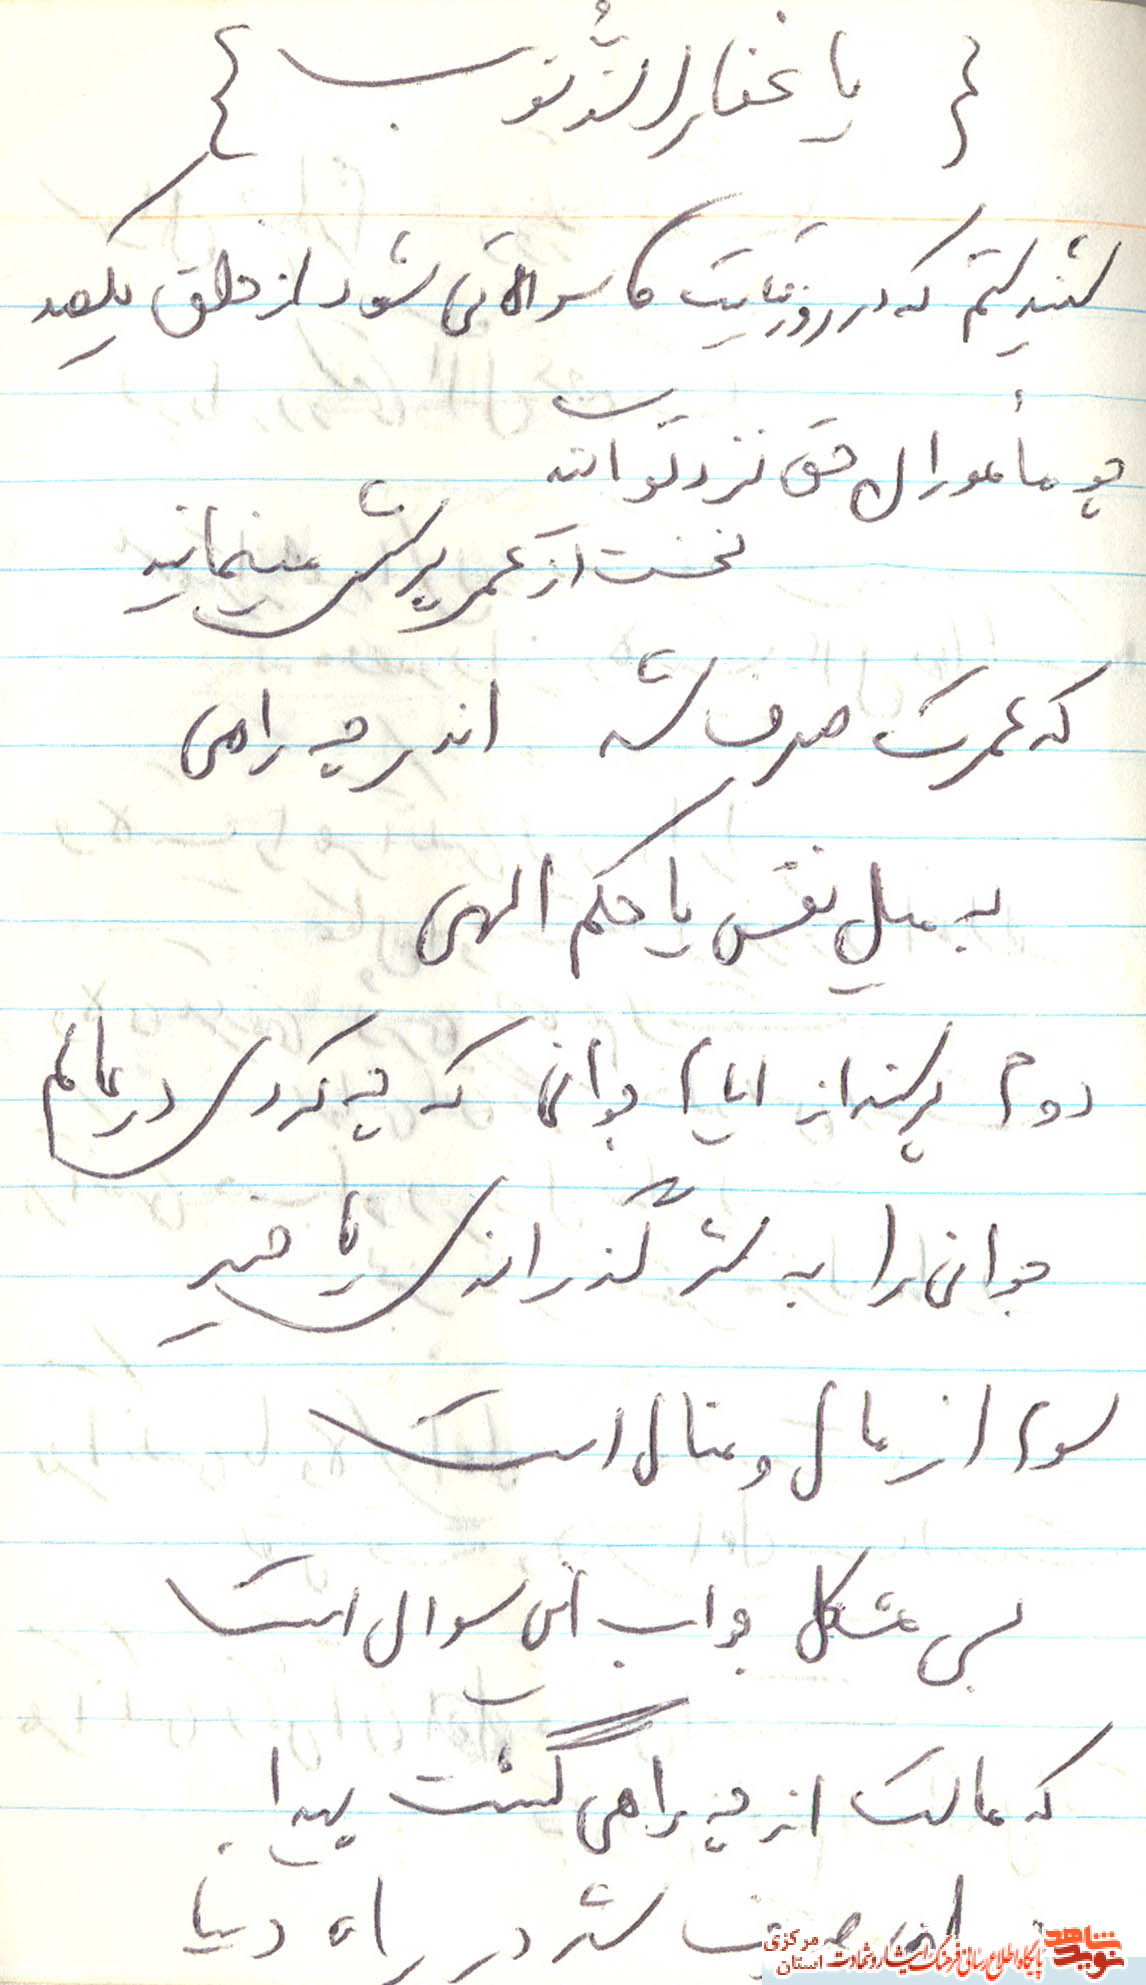 { یا غفار الذنوب }
شنیدستم که در روز قیامت سوالاتی شود از خلق یکصد
چو مأمورال حق نزد تو آیند
نخست از عمر پرسش مینمایند
که عمرت صرف شد اندر چه راهی
به میل نفس یا حکم الهی
دوم پرسند از ایام جوانی که چه کردی در عالم
جوانی را به شر گذراندی یا خیر
سوم از مال و منال است
بسی مشکل جواب این سوال است
که مالت از چه راهی گشت پیدا
صرف شد در راه دنیا
نوید شاهد
پایگاه اطلاع رسانی فرهنگ ایثار و شهادت استان مرکزی